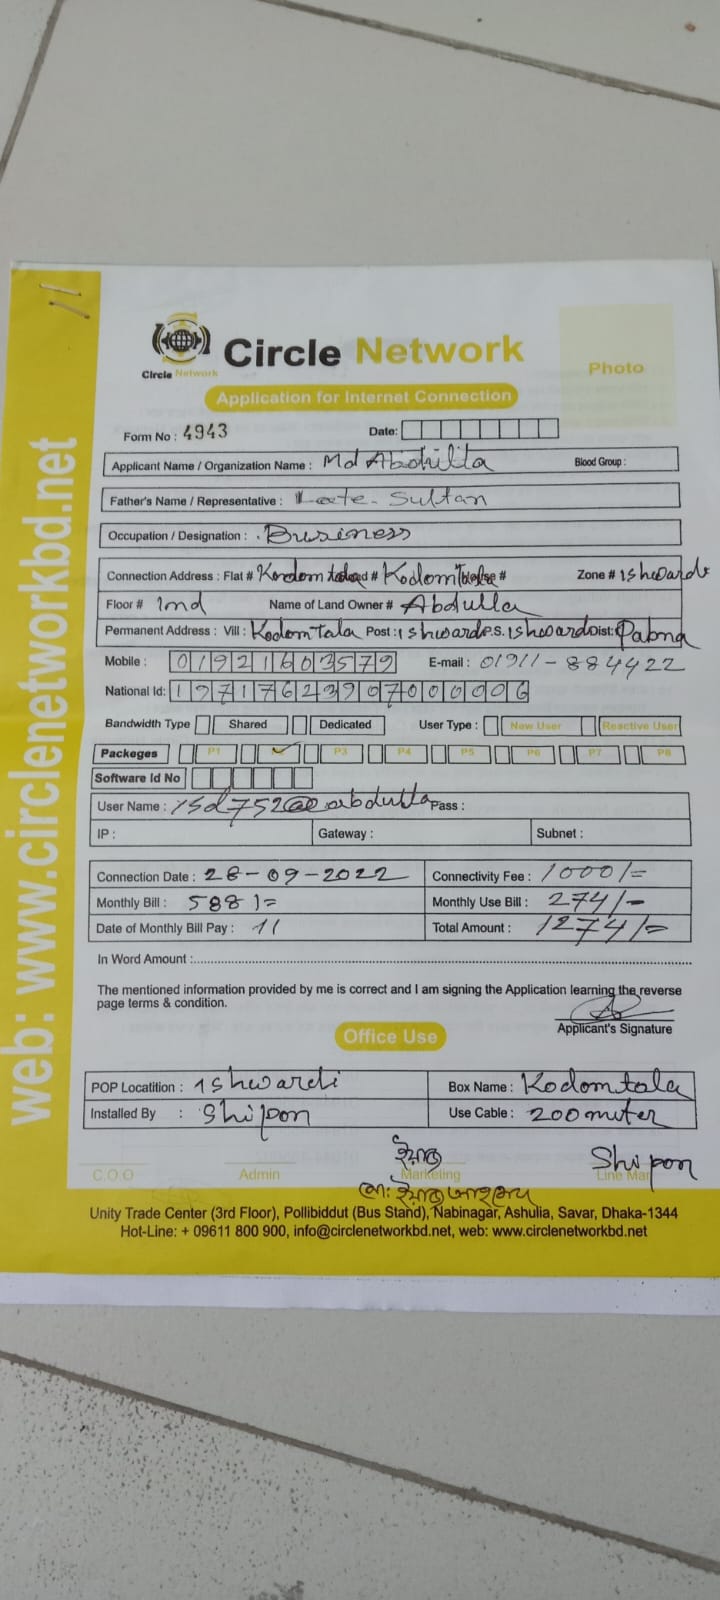 Circle Network
Circle Network
Photo
Application for Internet Connection
Form No : 4943
Date:
Applicant Name / Organization Name :
Blood Group :
Father's Name / Representative : Late. Sultan
Occupation / Designation : Business
Connection Address : Flat # Kodomtala Road # Kodomtala House # Zone # Ishwardi
Floor # Name of Land Owner # Abdulla
Permanent Address : Vill : Kodomtala Post : Ishwardi P.S. Ishwardi Dist: Pabna
Mobile : 01921603579 E-mail : 01911-884422
National Id: 19717623907000006
Bandwidth Type Shared Dedicated User Type : New User Reactive User
Packeges P1 P3 P4 P5 P6 P7 P8
Software Id No
User Name : Pass :
IP : Gateway : Subnet :
Connection Date : 28-09-2022 Connectivity Fee : 1000/=
Monthly Bill : 588/= Monthly Use Bill : 274/-
Date of Monthly Bill Pay : 11 Total Amount : 1274/=
In Word Amount :
The mentioned information provided by me is correct and I am signing the Application learning the reverse
page terms & condition.
Applicant's Signature
Office Use
POP Locatition : Ishwardi Box Name : Kodomtala
Installed By : Shipon Use Cable : 200 muter
Shipon
C.O.O Admin Marketing Line Man
Unity Trade Center (3rd Floor), Pollibiddut (Bus Stand), Nabinagar, Ashulia, Savar, Dhaka-1344
Hot-Line: + 09611 800 900, info@circlenetworkbd.net, web: www.circlenetworkbd.net
web: www.circlenetworkbd.net